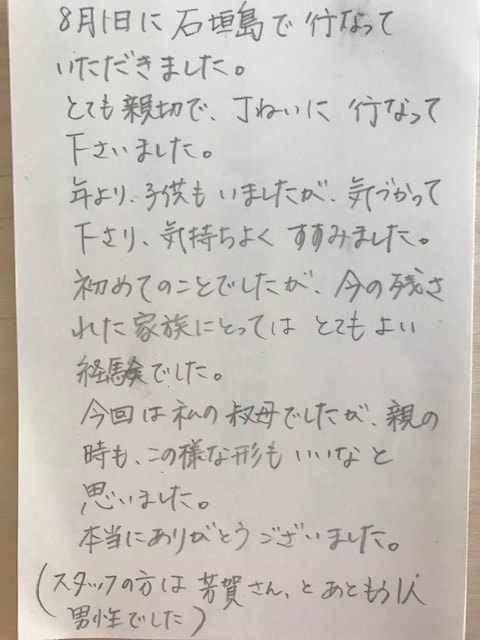 8月1日に石垣島で行なって
いただきました。
とても親切で、丁ねいに行なって
下さいました。
年より、子供もいましたが、気づかって
下さり、気持ちよくすすみました。
初めてのことでしたが、今の残さ
れた家族にとってはとてもよい
経験でした。
今回は私の叔母でしたが、親の
時も、この様な形もいいなと
思いました。
本当にありがとうございました。
(スタッフの方は芳賀さん、とあともう1人
男性でした)